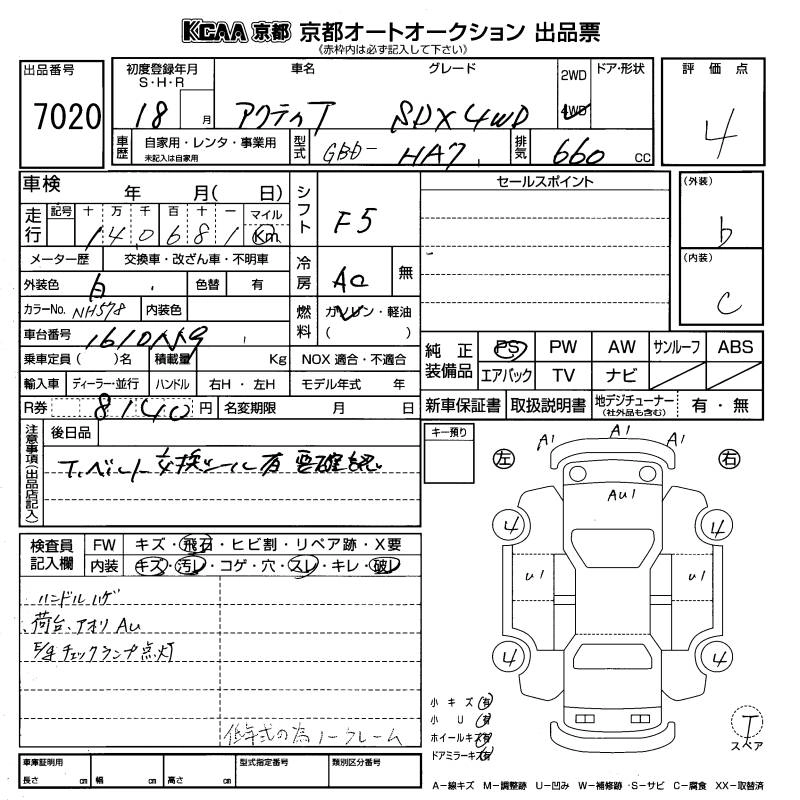 KCAA 京都 京都オートオークション 出品票
(赤枠内は必ず記入して下さい)
出品番号 7020
初度登録年月 S・H・R 18 月
車名 アクティT
グレード SDX 4WD
2WD 4WD
ドア・形状
評価点 4
車歴 自家用・レンタ・事業用 未記入は自家用
型式 GBD- HA7
排気 660 CC
車検 年 月( 日)
シフト F5
セールスポイント
(外装) b
(内装) C
走行 記号 十 万 千 百 十 一 マイル Km
140681
メーター歴 交換車・改ざん車・不明車
冷房 AC 無
外装色 白 色替 有
カラーNo. NH578 内装色
燃料 ガソリン・軽油 ( )
車台番号 1610449
乗車定員 ( )名 積載量 Kg NOX 適合・不適合
輸入車 ディーラー・並行 ハンドル 右H・左H モデル年式 年
R券 8140 円 名変期限 月 日
純正装備品 PS PW AW サンルーフ ABS
エアバック TV ナビ
新車保証書 取扱説明書 地デジチューナー (社外品も含む) 有・無
注意事項(出品店記入) 後日品
T.ベルト交換シール有 要確認
キー預り
左 右
A1 A1 A1
AU1
4 4
U1 U1
4 4
検査員記入欄 FW キズ・飛石・ヒビ割・リペア跡・X要
内装 キズ・汚レ・コゲ・穴・スレ・キレ・破レ
ハンドルハゲ
荷台、アオリ AU
E/gチェックランプ点灯
低年式の為ノークレーム
小キズ 有
小U 有
ホイールキズ 有
ドアミラーキズ 有
T
スペア
車庫証明用 長さ cm 幅 cm 高さ cm 型式指定番号 類別区分番号
A-線キズ M-調整跡 U-凹み W-補修跡 S-サビ C-腐食 XX-取替済